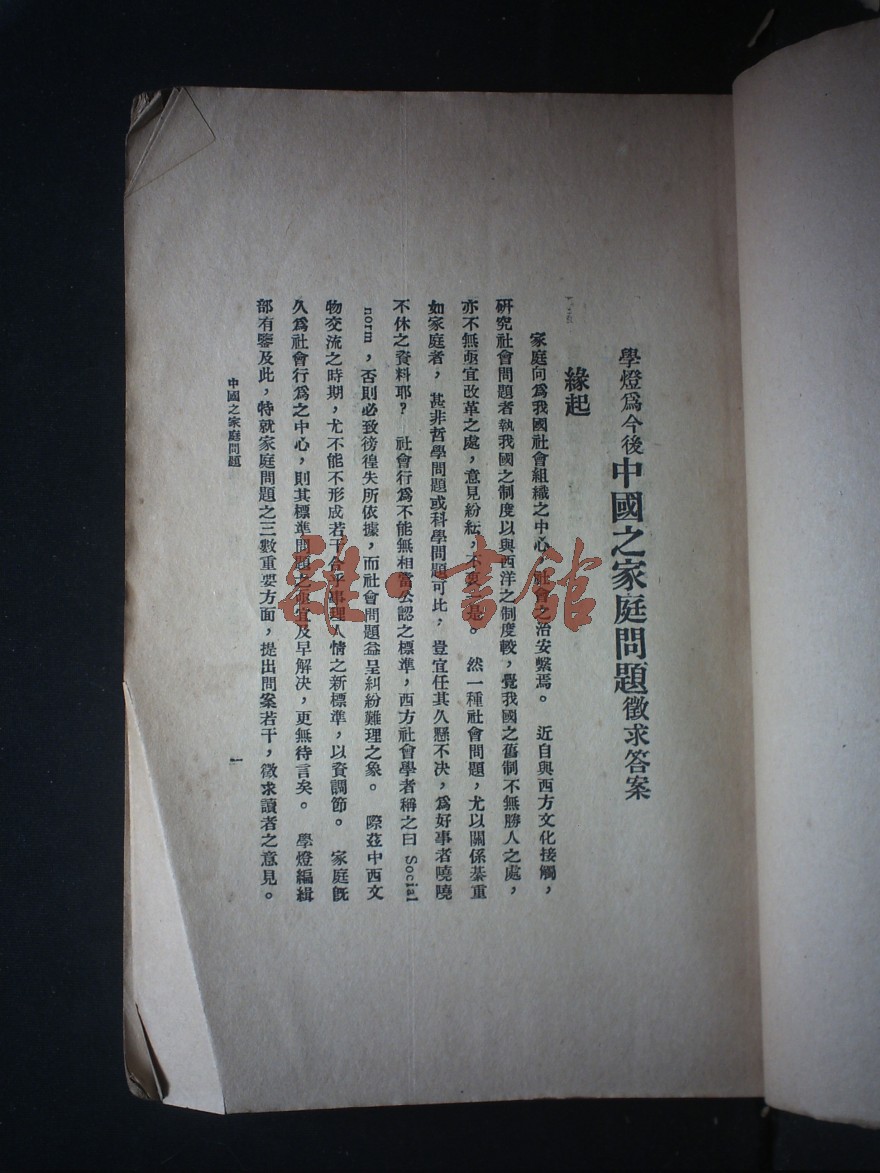 學燈爲今後中國之家庭問題徵求答案
緣起
家庭向爲我國社會組織之中心,社會之治安繫焉。 近自與西方文化接觸,
研究社會問題者執我國之制度以與西洋之制度較,覺我國之舊制不無勝人之處,
亦不無亟宜改革之處,意見紛紜,不 是。 然一種社會問題,尤以關係綦重
如家庭者,甚非哲學問題或科學問題可比,豈宜任其久懸不決,爲好事者嘵嘵
不休之資料耶? 社會行爲不能無相當公認之標準,西方社會學者稱之曰 Social
norm,否則必致徬徨失所依據,而社會問題益呈糾紛難理之象。 際茲中西文
物交流之時期,尤不能不形成若干合乎事理人情之新標準,以資調節。 家庭旣
久爲社會行爲之中心,則其標準問題之亟宜及早解決,更無待言矣。 學燈編緝
部有鑒及此,特就家庭問題之三數重要方面,提出問案若干,徵求讀者之意見。
中國之家庭問題
一
雜·書館